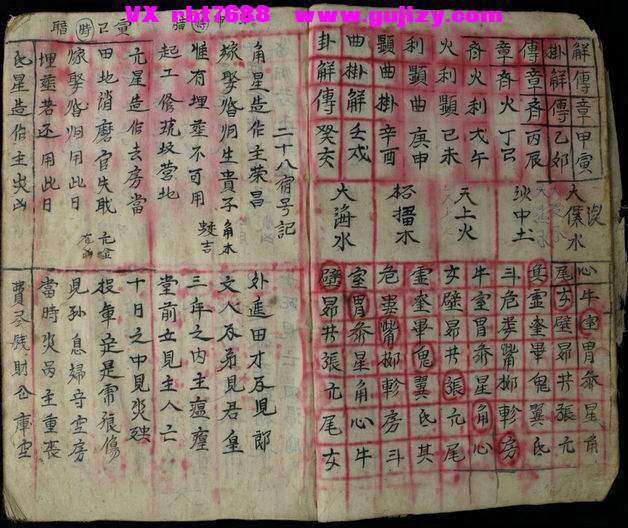 VX rbt7688 www.gujizy.com
解傳章甲寅
掛解傳乙卯
傳章斉丙辰
章斉火丁巳
斉火利戊午
火利顯己未
利顯曲庚申
顯曲掛辛酉
曲掛解壬戌
卦解傳癸亥
大溪水
沙中土
天上火
柘榴木
大海水
心牛室胃參星角
尾女壁昴井張亢
箕虛奎畢鬼翼氐
斗危婁觜柳軫房
牛室胃參星角心
女壁昴井張亢尾
虛奎畢鬼翼氐其
危婁觜柳軫房斗
室胃參星角心牛
壁昴井張亢尾女
二十八宿号記
角星造作主荣昌
外進田才及見郎
嫁娶婚姻生貴子
角木蛟吉
文人及弟見君皇
惟有埋葬不可用
三年之内主瘟
起工修筑坟营地
堂前立見主人亡
亢星造作去房當
十日之中見灾殃
田地消磨官失职
亢金
投軍定是帶狼傷
嫁娶婚姻用此日
兒孫息婦守空房
埋葬若还用此日
當時灾禍主重喪
氐星造作主灾凶
費尽殘財仓庫空